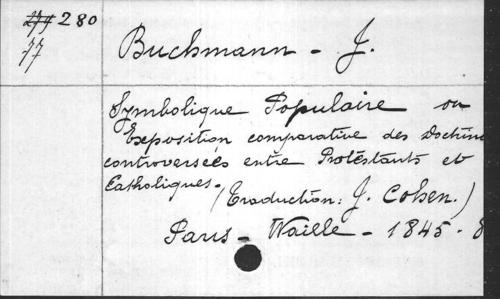 274 280
77
Buchmann - J.
Symbolique Populaire ou
Exposition comparative des Doctrin
controversées entre Protestants et
Catholiques. (Traduction: J. Cohen.)
Paris - Waille - 1845. 8